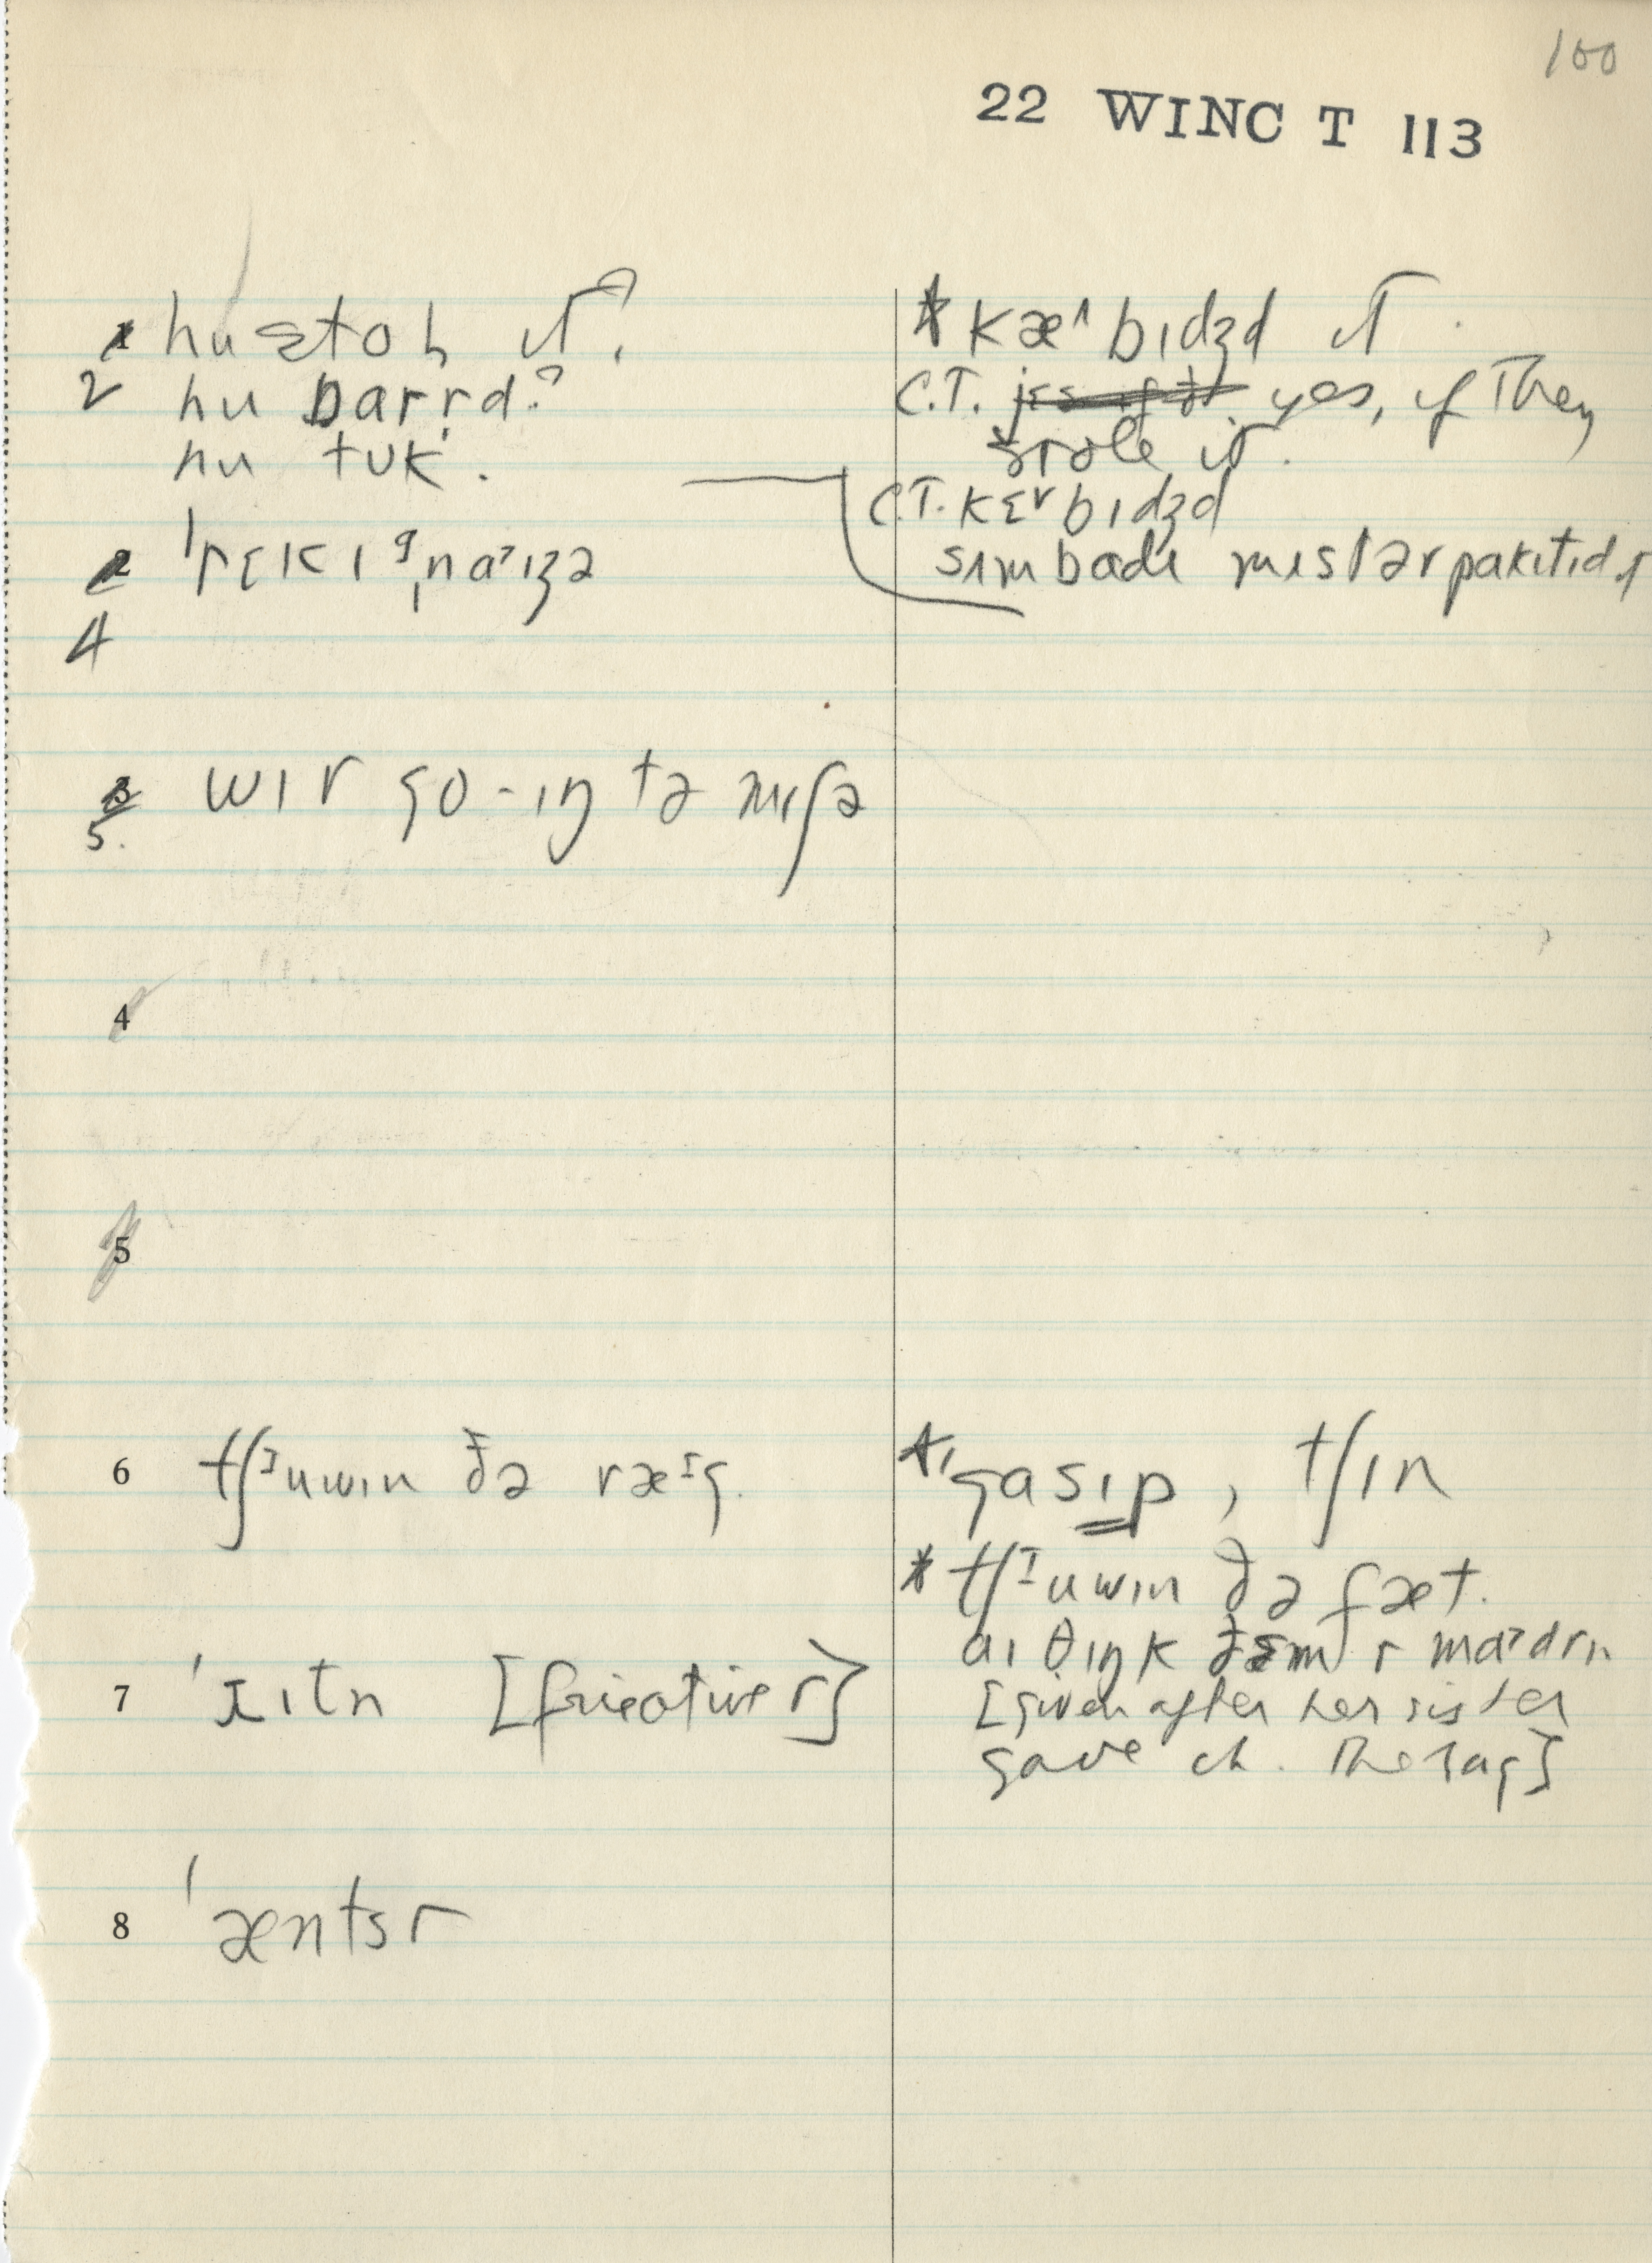 100
22 WINC T 113
1 hu stol it?
2 hu barɪd?
hu tuk.
2 ˈrɛkɪgˌnaɪzə
4
3 wɪr go-ɪŋ tə mɪʃə
5.
4
5
6 tʃᶦuwɪn ðə ræᶦg.
7 ˈɹɪtn [fricative r]
8 ˈæntsr
* kæˈbɪdʒd it.
C.T. yes, if they
stole it.
C.T. kɛrbɪdʒd
sʌmbadi mɪstərpakɪtɪd ɪ
* ˈgasɪp, tʃɪn
* tʃᶦuwɪn ðə fæt.
aɪ θɪŋk ðɛm r madrn
[given after her sister
gave ch. the rag]